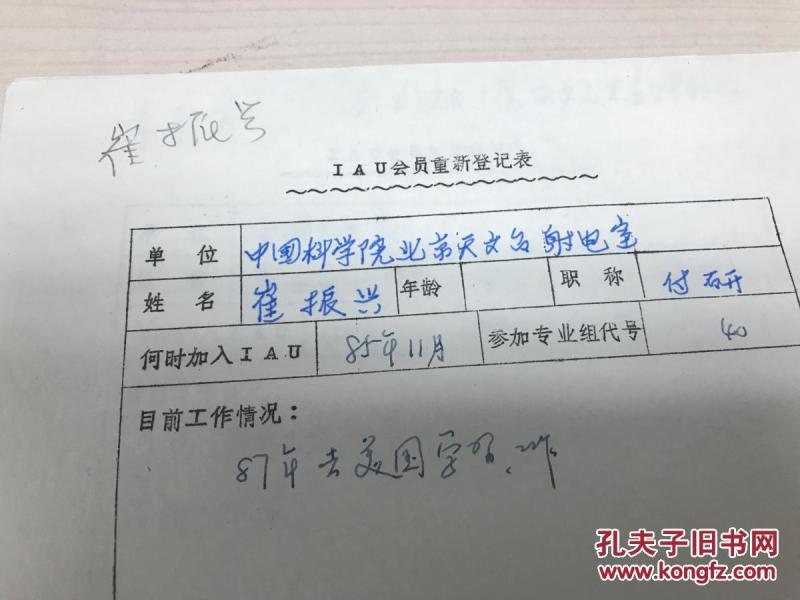 崔振兴
IAU会员重新登记表
单位 中国科学院北京天文台射电室
姓名 崔振兴 年龄 职称 付研
何时加入IAU 85年11月 参加专业组代号 40
目前工作情况：
87年去美国学习、工作
孔夫子旧书网
www.kongfz.com